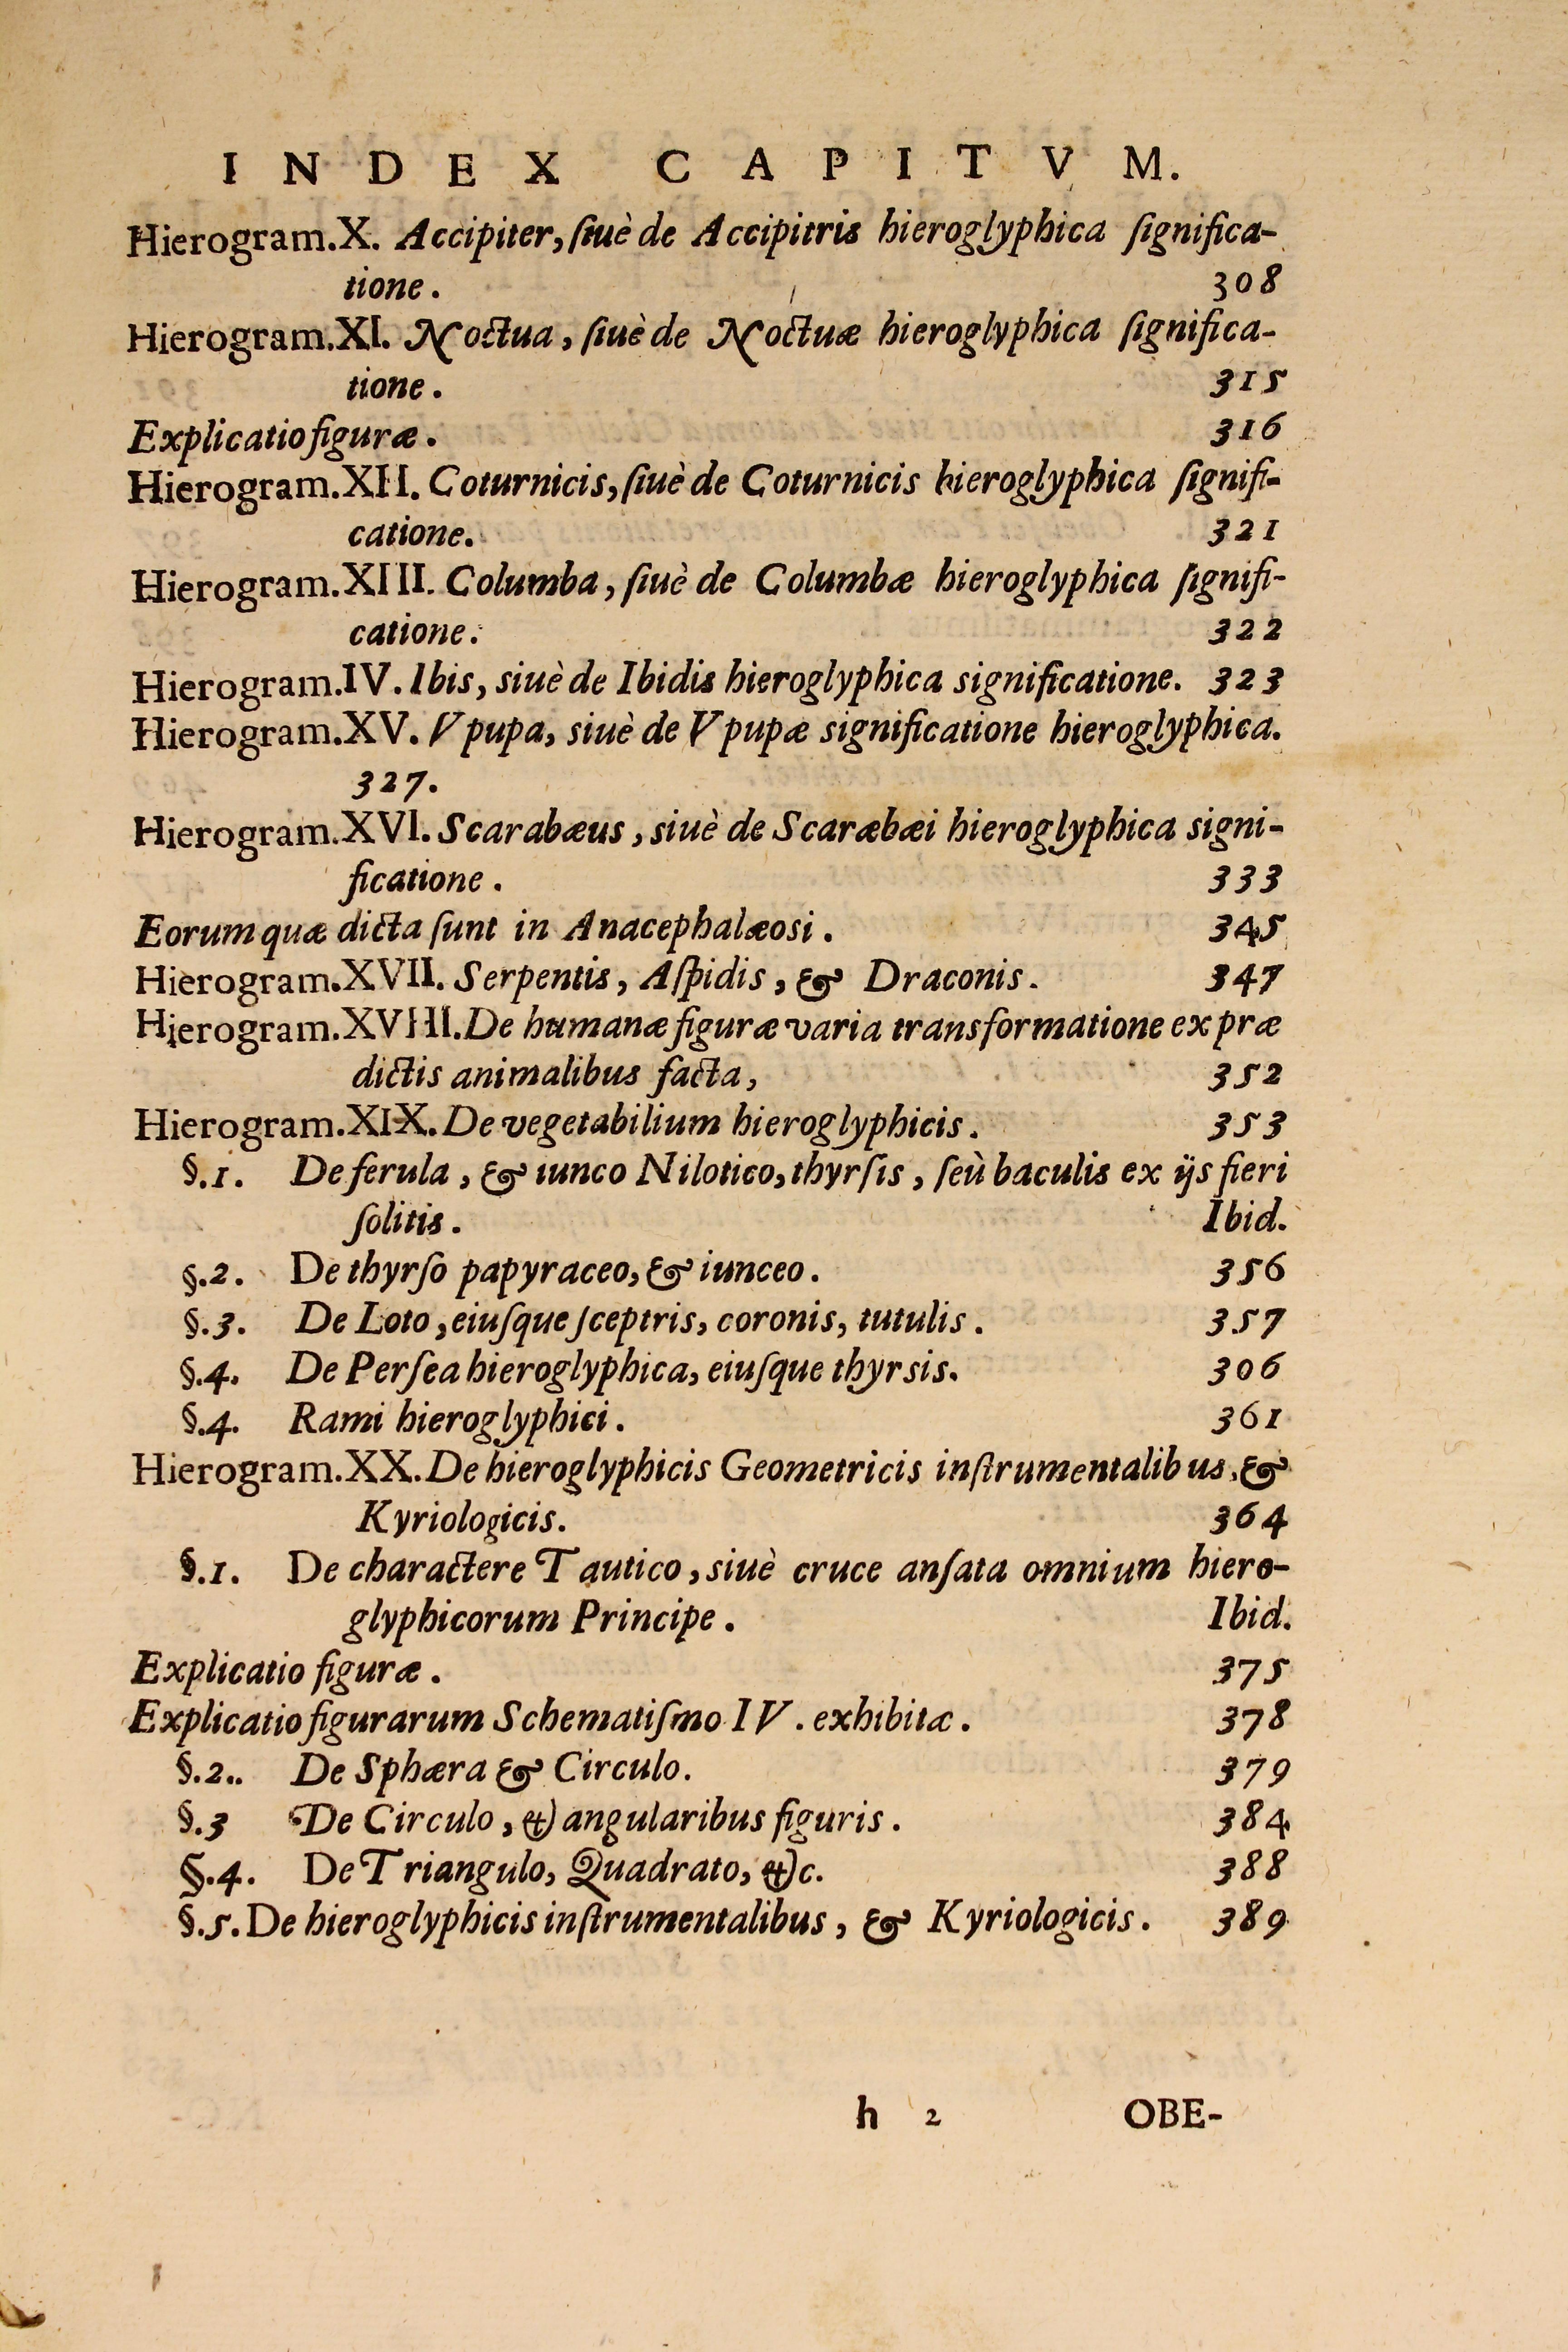 INDEX CAPITVM.
Hierogram.X. Accipiter, ſiuè de Accipitris hieroglyphica ſignifica-
tione. 308
Hierogram.XI. Noctua, ſiuè de Noctuæ hieroglyphica ſignifica-
tione. 315
Explicatio figuræ. 316
Hierogram.XII. Coturnicis, ſiuè de Coturnicis hieroglyphica ſignifi-
catione. 321
Hierogram.XIII. Columba, ſiuè de Columbæ hieroglyphica ſignifi-
catione. 322
Hierogram.IV. Ibis, siuè de Ibidis hieroglyphica significatione. 323
Hierogram.XV. Vpupa, siuè de Vpupæ significatione hieroglyphica.
327.
Hierogram.XVI. Scarabæus, siuè de Scaræbæi hieroglyphica signi-
ficatione. 333
Eorum quæ dicta ſunt in Anacephalæosi. 345
Hierogram.XVII. Serpentis, Aſpidis, & Draconis. 347
Hierogram.XVIII. De humanæ figuræ varia transformatione ex præ
dictis animalibus facta, 352
Hierogram.XIX. De vegetabilium hieroglyphicis. 353
§.1. De ferula, & iunco Nilotico, thyrſis, ſeù baculis ex ijs fieri
ſolitis. Ibid.
§.2. De thyrſo papyraceo, & iunceo. 356
§.3. De Loto, eiuſque ſceptris, coronis, tutulis. 357
§.4. De Perſea hieroglyphica, eiuſque thyrsis. 306
§.4. Rami hieroglyphici. 361
Hierogram.XX. De hieroglyphicis Geometricis inſtrumentalibus, &
Kyriologicis. 364
§.1. De charactere Tautico, siuè cruce anſata omnium hiero-
glyphicorum Principe. Ibid.
Explicatio figuræ. 375
Explicatio figurarum Schematiſmo IV. exhibitæ. 378
§.2.. De Sphæra & Circulo. 379
§.3 De Circulo, & angularibus figuris. 384
§.4. De Triangulo, Quadrato, &c. 388
§.5. De hieroglyphicis inſtrumentalibus, & Kyriologicis. 389
h 2 OBE-